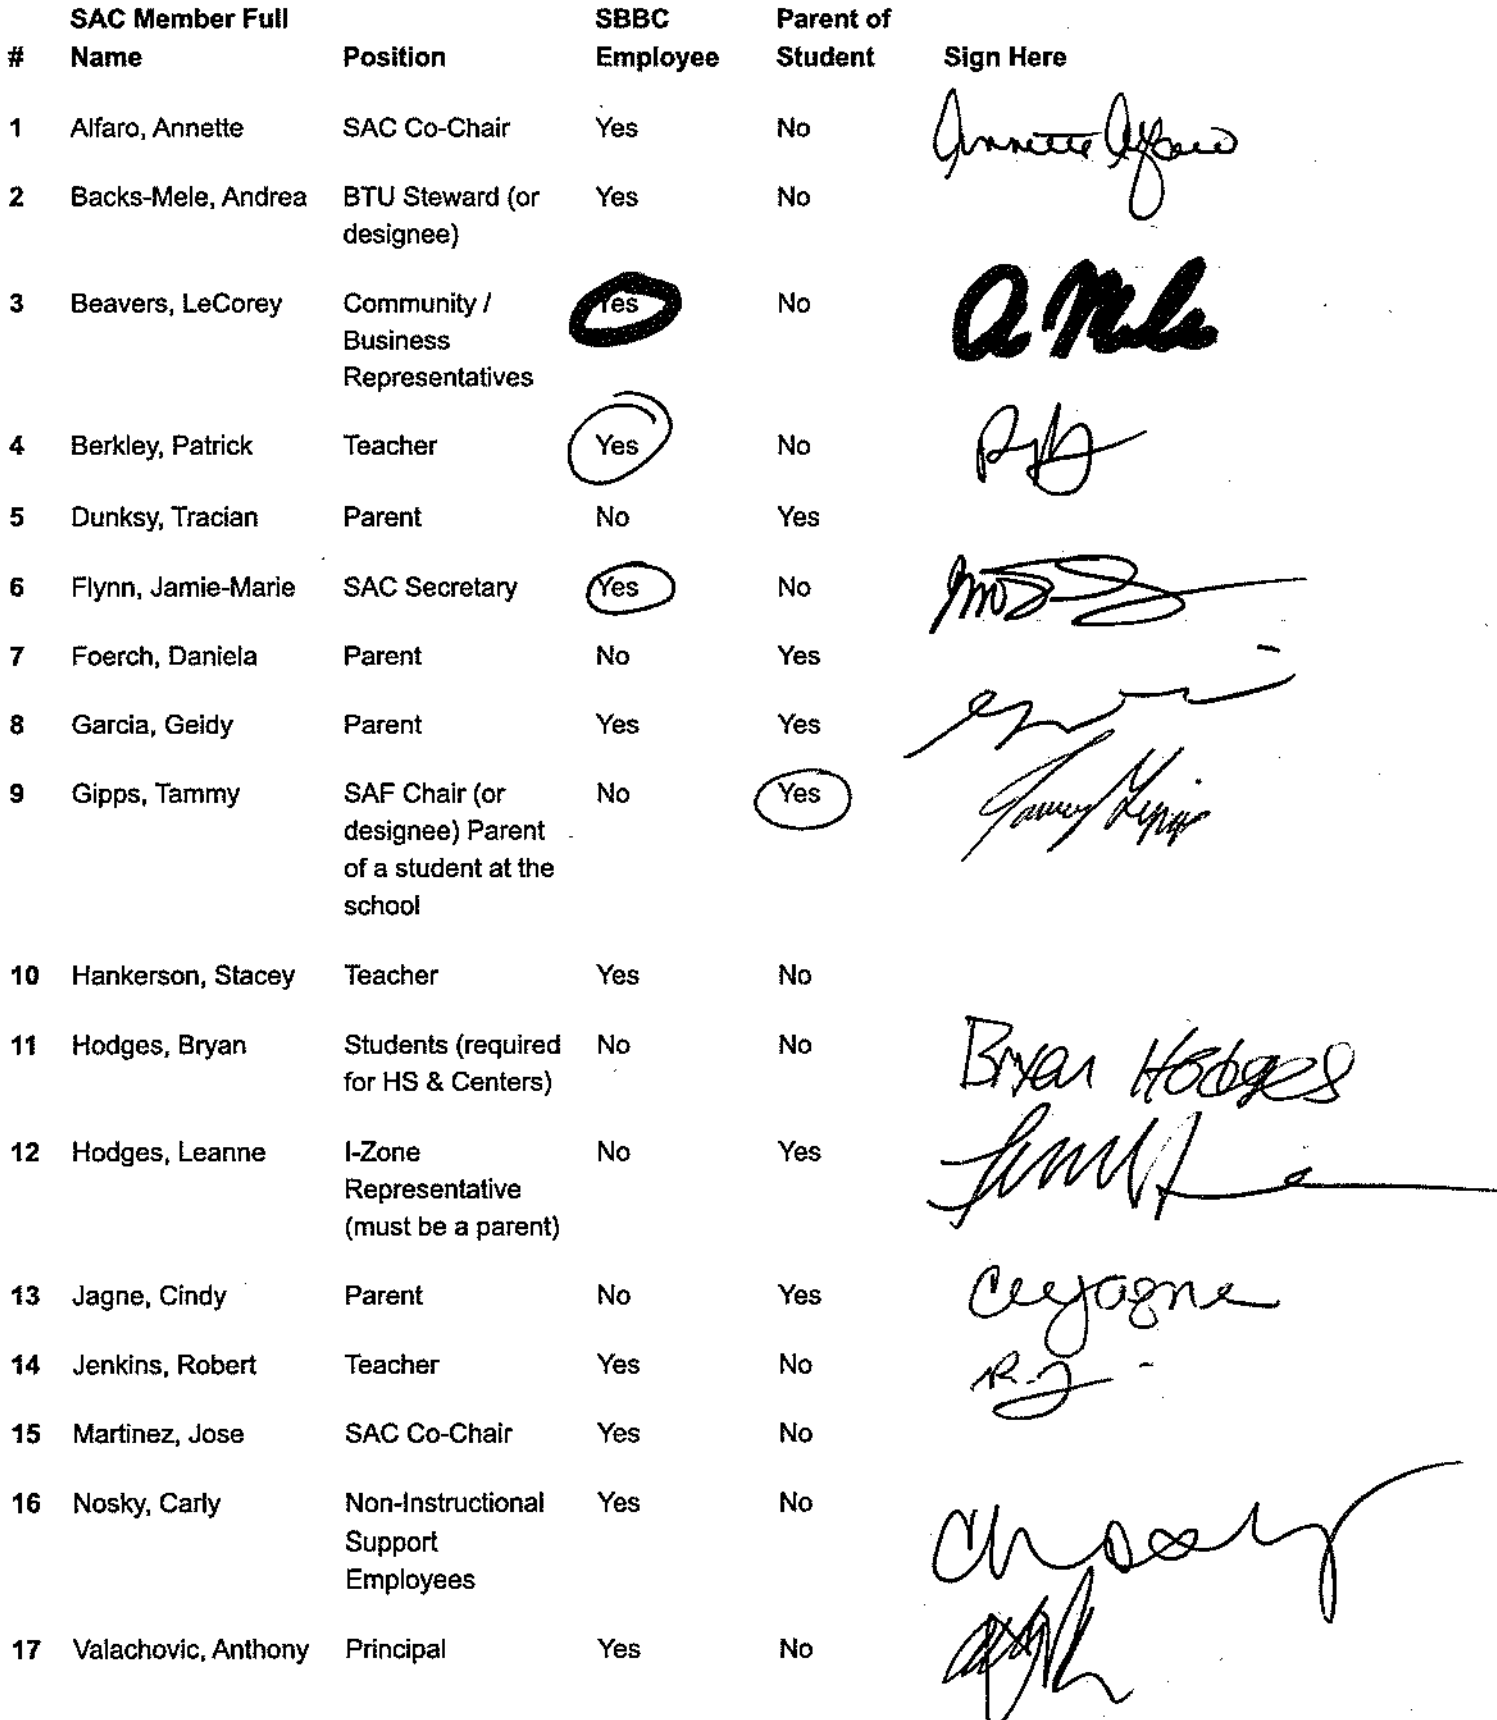 SAC Member Full SBBC Parent of
# Name Position Employee Student Sign Here
1 Alfaro, Annette SAC Co-Chair Yes No Annette Alfaro
2 Backs-Mele, Andrea BTU Steward (or Yes No
designee)
3 Beavers, LeCorey Community / Yes No A Mele
Business
Representatives
4 Berkley, Patrick Teacher Yes No
5 Dunksy, Tracian Parent No Yes
6 Flynn, Jamie-Marie SAC Secretary Yes No
7 Foerch, Daniela Parent No Yes
8 Garcia, Geidy Parent Yes Yes
9 Gipps, Tammy SAF Chair (or No Yes Tammy Gipps
designee) Parent
of a student at the
school
10 Hankerson, Stacey Teacher Yes No
11 Hodges, Bryan Students (required No No Bryan Hodges
for HS & Centers)
12 Hodges, Leanne I-Zone No Yes
Representative
(must be a parent)
13 Jagne, Cindy Parent No Yes
14 Jenkins, Robert Teacher Yes No R.J
15 Martinez, Jose SAC Co-Chair Yes No
16 Nosky, Carly Non-Instructional Yes No
Support
Employees
17 Valachovic, Anthony Principal Yes No